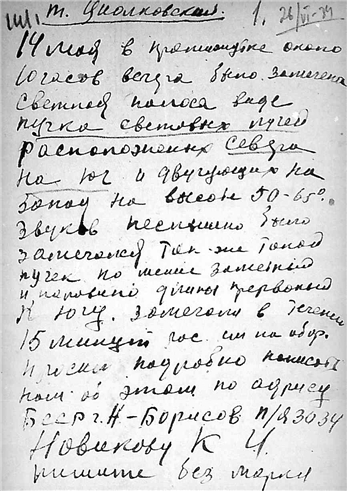 т. Циолковский. 1. 26/VI-34
14 мая в промежутке около
10 часов вечера была замечена
световая полоса виде
пучка световых лучей
расположеных Севера
на юг и двужущихся на
запад на высоте 50-65°.
Звуков неслышно было
замечался так-же такой
пучек но менее заметный
и половино длины первоной
К Югу. замечали в течении
15 минут
просим подробно написать
нам об этом по адрису
БССР г. Н-Борисов п/я 3034
Новикову К И.
пишите без марки